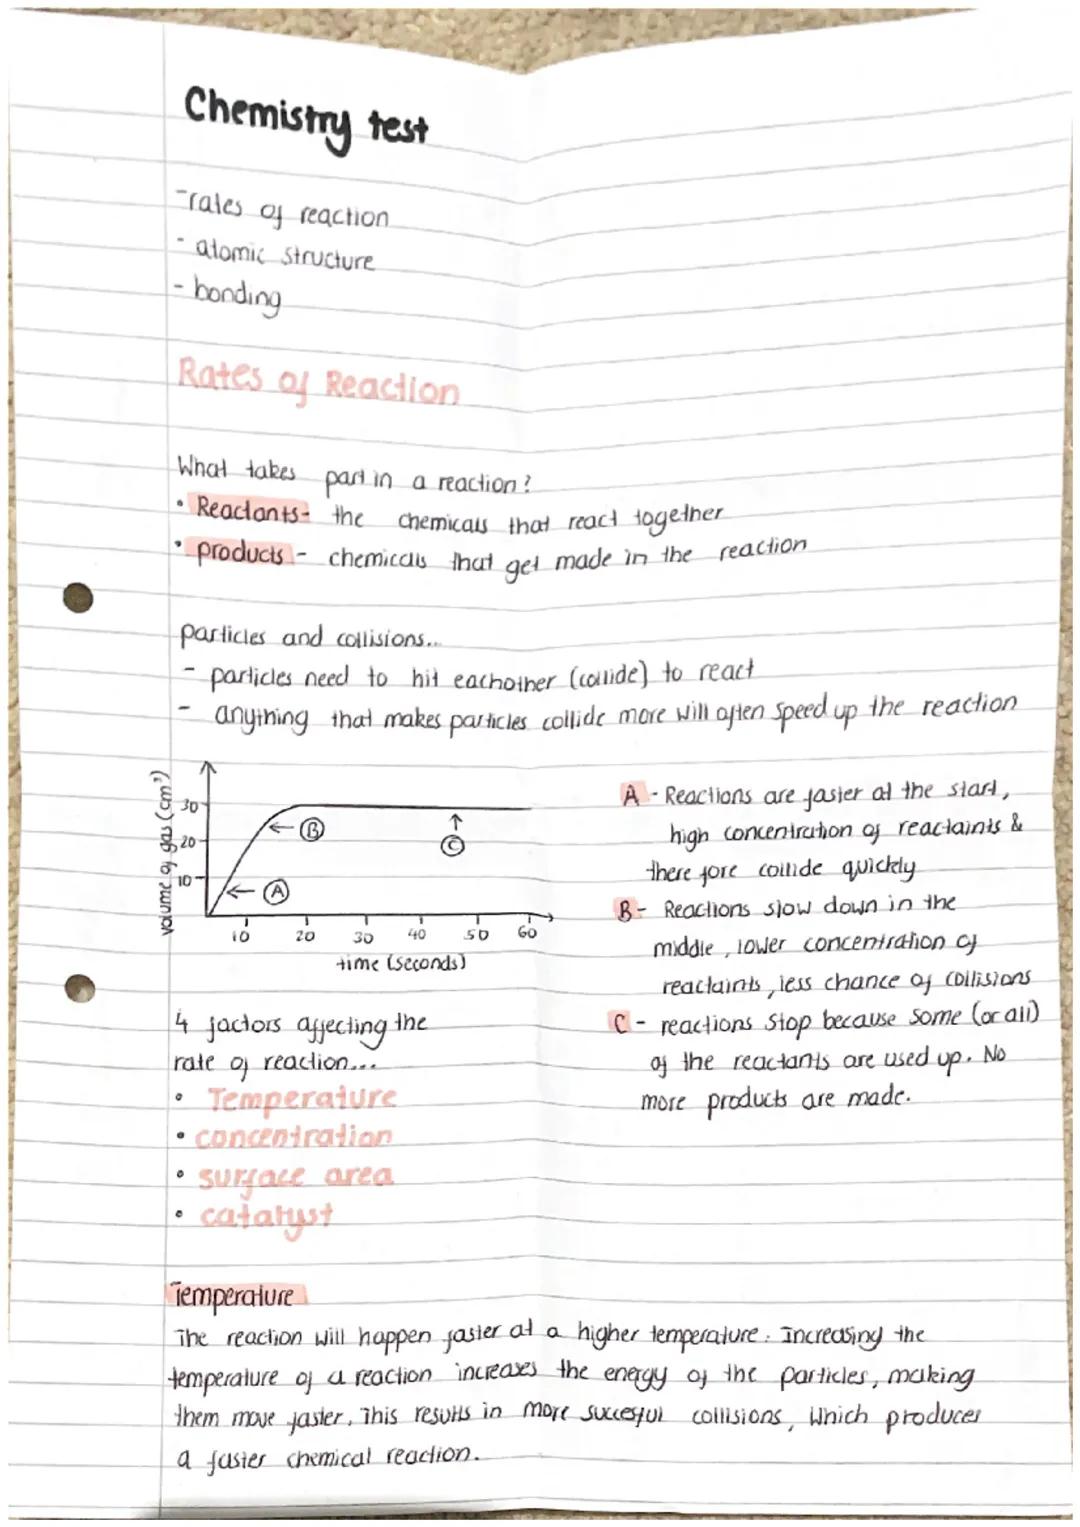 Chemistry test
- rates of reaction
- atomic structure
- bonding
Rates of Reaction
What takes part in a reaction?
• Reactants - the chemicals that react together
• products - chemicals that get made in the reaction
particles and collisions...
- particles need to hit eachother (collide) to react
- anything that makes particles collide more will often speed up the reaction
volume of gas (cm³)
30
20
10
A
B
C
10 20 30 40 50 60
time (seconds)
A - Reactions are faster at the start,
high concentration of reactaints &
there fore collide quickly
B - Reactions slow down in the
middle, lower concentration of
reactaints, less chance of collisions
C - reactions stop because some (or all)
of the reactants are used up. No
more products are made.
4 factors affecting the
rate of reaction...
• Temperature
• concentration
• surface area
• catalyst
Temperature
The reaction will happen faster at a higher temperature. Increasing the
temperature of a reaction increases the energy of the particles, making
them move faster. This results in more succesful collisions, which produces
a faster chemical reaction.